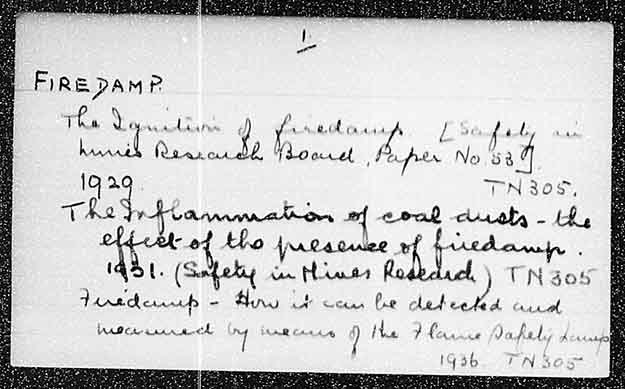 1.
FIREDAMP.
The Ignition of firedamp. [Safety in
Mines Research Board, Paper No. 53].
1929. TN305.
The Inflammation of coal dusts - the
effect of the presence of firedamp.
1931. (Safety in Mines Research) TN305
Firedamp - How it can be detected and
measured by means of the Flame Safety Lamp
1936. TN305